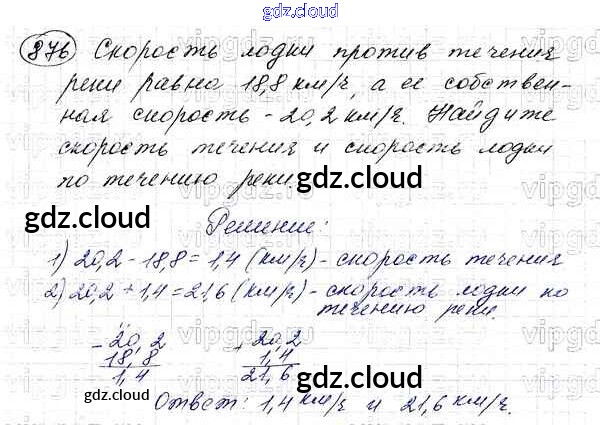 gdz.cloud
876 Скорость лодки против течения
реки равна 18,8 км/ч, а ее собствен-
ная скорость - 20,2 км/ч. Найдите
скорость течения и скорость лодки
по течению реки.
gdz.cloud
gdz.cloud
Решение:
1) 20,2 - 18,8 = 1,4 (км/ч) - скорость течения
2) 20,2 + 1,4 = 21,6 (км/ч) - скорость лодки по
течению реки.
gdz.cloud
- 20,2 + 20,2
18,8 1,4
1,4 21,6
gdz.cloud
Ответ: 1,4 км/ч и 21,6 км/ч.